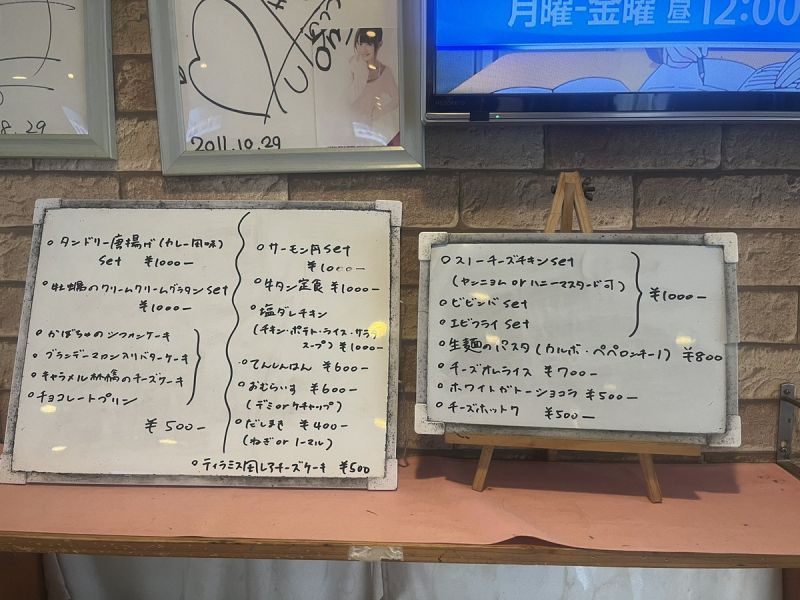 月曜-金曜 昼12:00
8.29
2011.10.29
○ タンドリー唐揚げ(カレー風味)
set ¥1000-
○ 牡蠣のクリームクリームグラタン set
¥1000-
○ かぼちゃのシフォンケーキ
○ ブランデーマロン入りバターケーキ
○ キャラメル林檎のチーズケーキ
○ チョコレートプリン
¥500-
○ サーモン丹 set
¥1000-
○ 牛タン定食 ¥1000-
○ 塩ダレチキン
(チキン・ポテト・ライス・サラダ
スープ) ¥1000-
○ てんしんはん ¥600-
○ おむらいす ¥600-
(デミ or ケチャップ)
○ だしまき ¥400-
(ねぎ or ノーマル)
○ ティラミス風レアチーズケーキ ¥500
○ スノーチーズチキン set
(ヤンニョム or ハニーマスタード可)
○ ビビンバ set
○ エビフライ set
¥1000-
○ 生麺のパスタ (カルボ・ペペロンチーノ) ¥800
○ チーズオムライス ¥700-
○ ホワイトガトーショコラ ¥500-
○ チーズホットク ¥500-